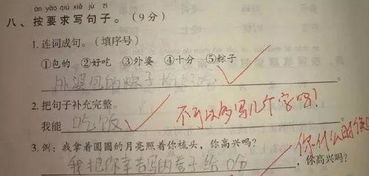 àn yāo qiú xiě jù zi
八、按要求写句子。（9分）
1. 连词成句。（填序号）
①包的 ②好吃 ③外婆 ④十分 ⑤粽子
外婆包的粽子
2. 把句子补充完整。
不可以多写几个字吗？
我能 吃饭
3. 例：我拿着圆圆的月亮照着你梳头，你高兴吗？
你什么时候
我把你 给 ，你高兴吗？